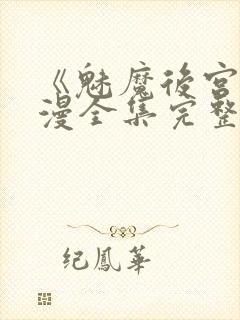 《魅魔後宮
漫全集完整
纪鳳華